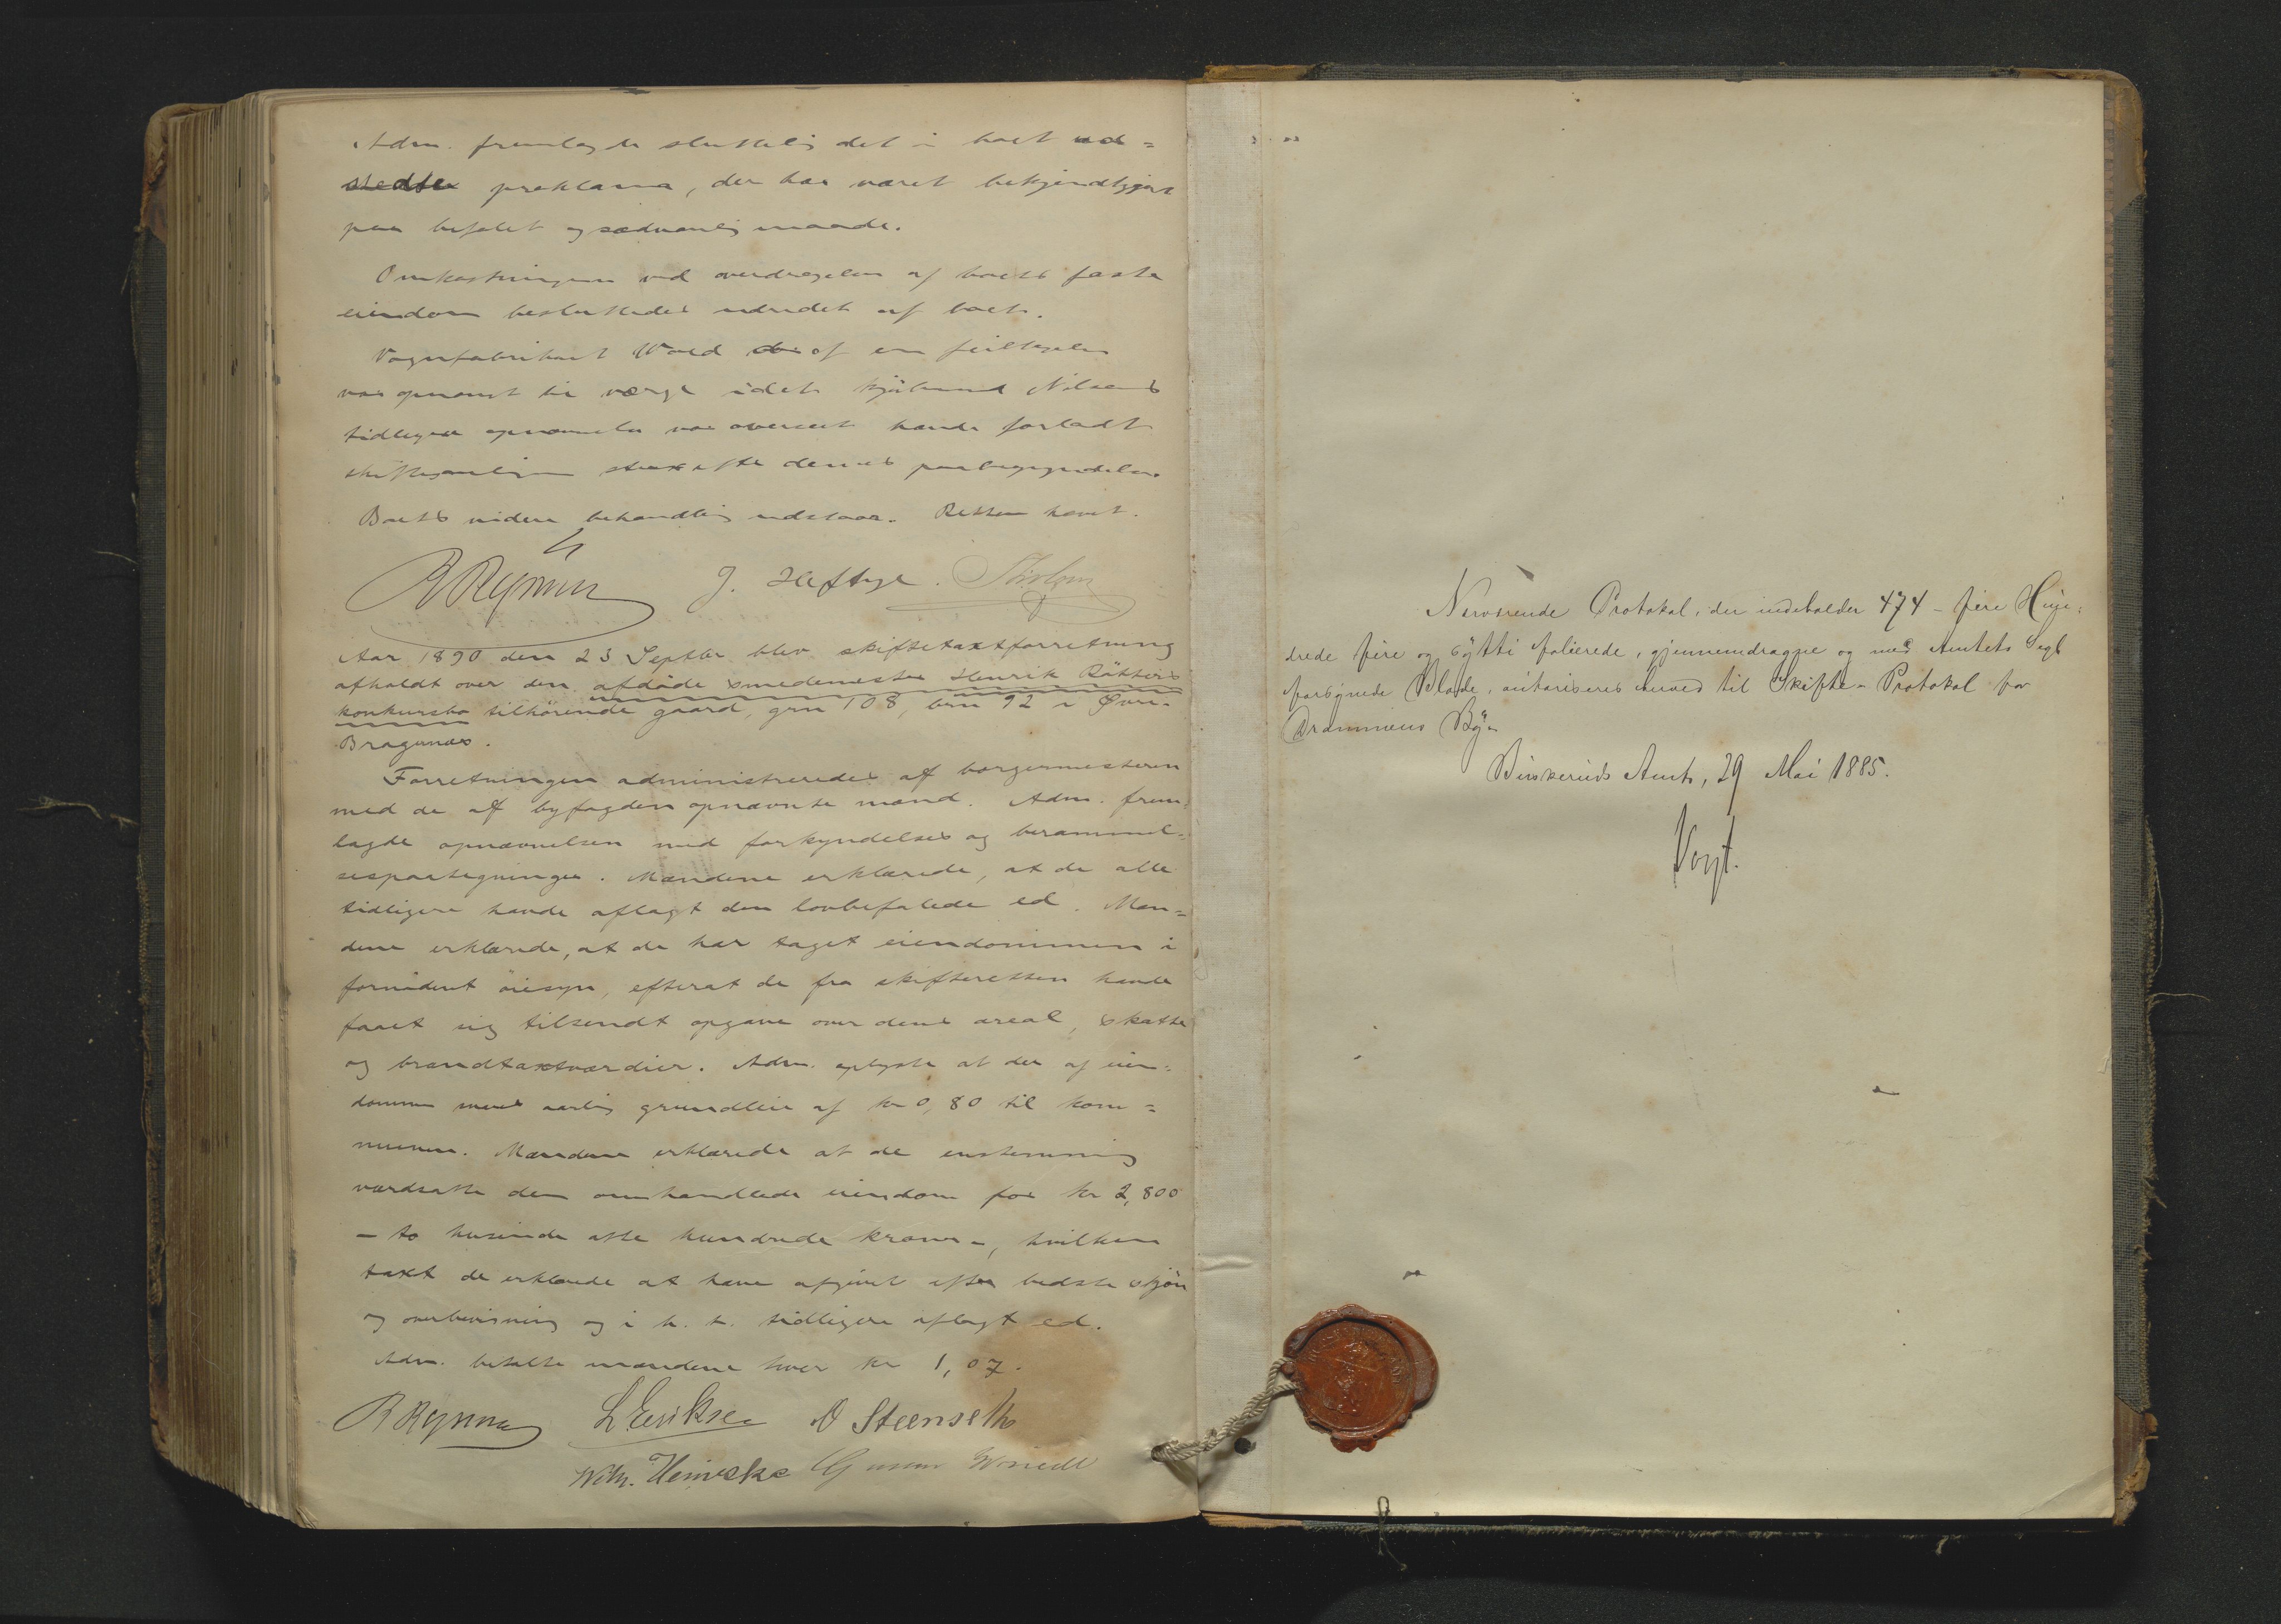 Adm. fremlagde sluttelig det i boet ud=
stedte proklama, der har været bekjendtgjort
paa befalet og sædvanlig maade.
Omkostningerne ved overdragelsen af boets faste
eiendom besluttedes udredet af boet.
Vognfabrikant Wold af en feiltagelse
var opnævnt til værge idet Nilsens
tidligere opnævnelse var overseet havde forladt
skiftesamlingen strax efter dennes paabegyndelse.
Boets videre behandling udstaar. Retten hævet.
J. Heftye.
Aar 1890 den 23 Septbr blev skiftetaxtforretning
afholdt over den afdöde smedemester Henrik Rätters
konkursbo tilhörende gaard, grn 108, brn 92 i Øvre-
Bragernæs.
Forretningen administreredes af borgermesteren
med de af byfogden opnævnte mænd. Adm. frem=
lagde opnævnelsen med forkyndelses og berammel=
sespaategninger. Mændene erklærede, at de alle
tidligere havde aflagt den lovbefalede ed. Mæn=
dene erklærede, at de har taget eiendommen i
fornödent öiesyn, efterat de fra skifteretten havde
faaet sig tilsendt opgave over dens areal, skatte
og brandtaxtværdier. Adm. oplyste at der af eien=
dommen svares aarlig grundleie af kr 0,80 til kom=
munen. Mændene erklærede at de enstemmig
værdsatte den omhandlede eiendom for kr 2,800
- to tusinde otte hundrede kroner -, hvilken
taxt de erklærede at have afgivet efter bedste skjön
og overbevisning og i h. t. tidligere aflagt ed.
Adm. betalte mændene hver kr 1,07.
L Eriksen O Steenseth
Wilh. Heinecke Gunnar
Nærværende Protokol, der indeholder 474 - fire Hun=
drede fire og sÿtti folierede, gjennemdragne og med Amtets Segl
forsynede Blade, autoriseres herved til Skifte-Protokol for
Drammens Bÿ.
Buskeruds Amt, 29 Mai 1885.
Vogt.